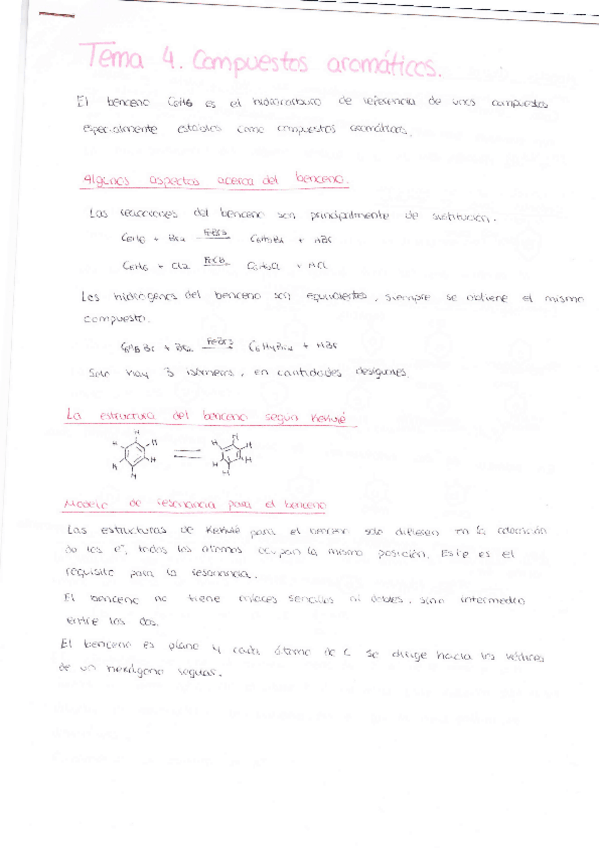 Tema 4. Compuestos aromáticos.
El benceno C6H6 es el hidrocarburo de referencia de unos compuestos
especialmente estables como compuestos aromáticos.
Algunos aspectos acerca del benceno.
Las reacciones del benceno son principalmente de sustitución.
C6H6 + Br2 FeBr3 C6H5Br + HBr
C6H6 + Cl2 FeCl3 C6H5Cl + HCl
Los hidrógenos del benceno son equivalentes, siempre se obtiene el mismo
compuesto.
C6H5Br + Br2 FeBr3 C6H4Br2 + HBr
Solo hay 3 isómeros, en cantidades desiguales.
La estructura del benceno según Kekulé
H H H H H H H H H H H H
Modelo de resonancia para el benceno
Las estructuras de Kekulé para el benceno solo difieren en la
de los e-, todos los átomos ocupan la misma posición. Este es el
requisito para la resonancia.
El benceno no tiene enlaces sencillos ni dobles, sino intermedio
entre los dos.
El benceno es plano y cada átomo de C se dirige hacia los vértices
de un hexágono regular.